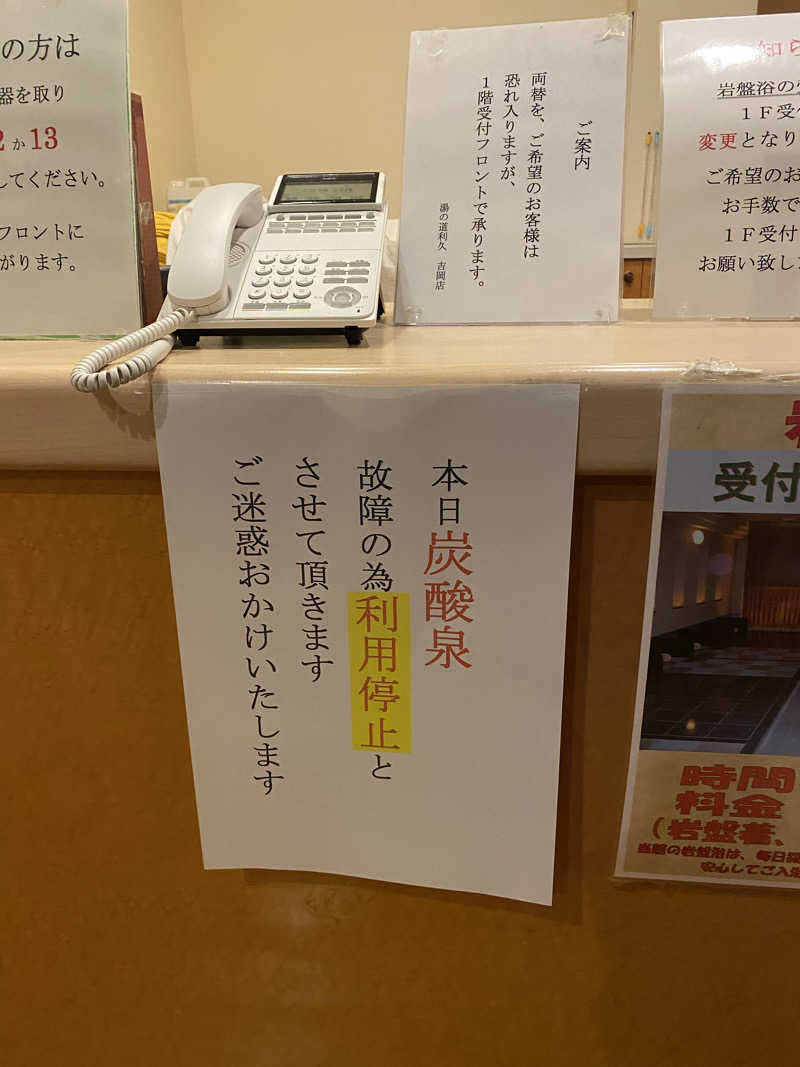 の方は
器を取り
か 13
してください。
フロントに
がります。
ご案内
両替を、ご希望のお客様は
恐れ入りますが、
1階受付フロントで承ります。
湯の道利久 吉岡店
知ら
岩盤浴の
1F受
変更となり
ご希望のお
お手数で
1F受付
お願い致し
本日炭酸泉
故障の為利用停止と
させて頂きます
ご迷惑おかけいたします
受付
時間
料金
(岩盤着、
当館の岩盤浴は、毎日
安心してご入